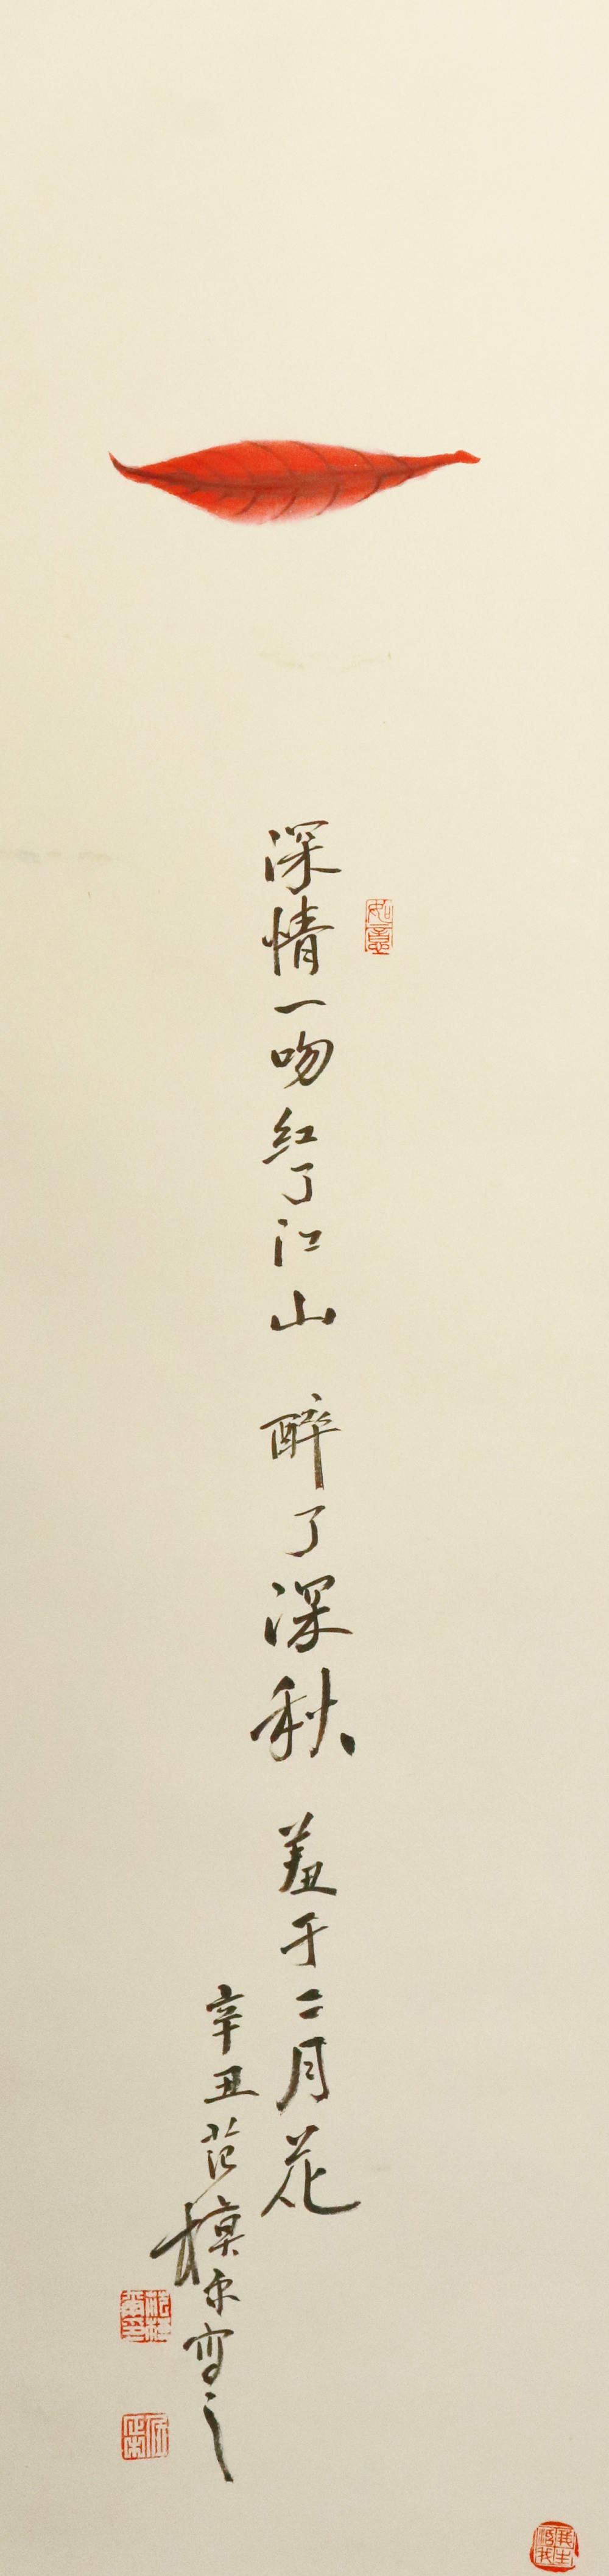 深情一吻红了江山 醉了深秋 羞于二月花
辛丑范模
写之
如意